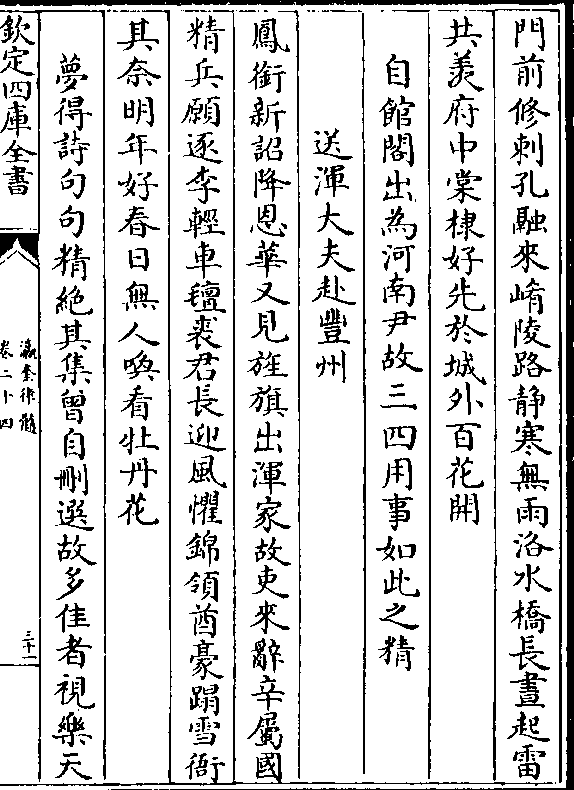 門前修刺孔融來崤陵路静寒無雨洛水橋長晝起雷
共羨府中棠棣好先於城外百花開
自館閣出為河南尹故三四用事如此之精
送渾大夫赴豐州
鳳銜新詔降恩華又見旌旗出渾家故吏來辭辛屬國
精兵願逐李輕車氊裘君長迎風懼錦領酋豪蹋雪衙
其奈明年好春日無人喚看牡丹花
夢得詩句句精絶其集曾自刪選故多佳者視樂天
欽定四庫全書
瀛奎律髓
卷二十四
三十一